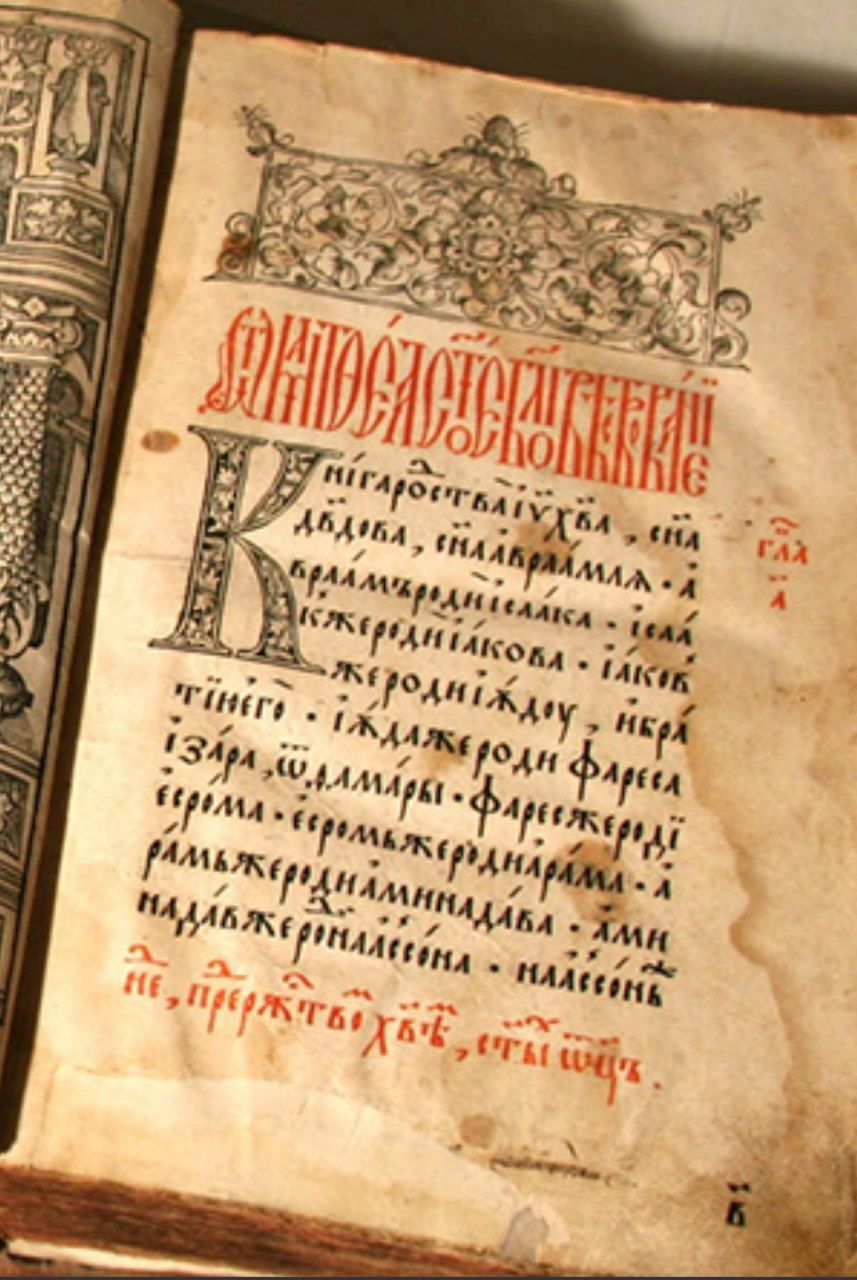 Ѿ маⷴ҇ѳе́а ст҃о́е бл҃говѣствова́нїе
Кни́га роⷭ҇ства̀ і҆ѵ҃ хв҃а, сн҃а
дв҃дова, сн҃а авраа́млѧ · а҆
враа́мъ роди̏ і҆саа́ка · і҆саа́
къ же роди̏ і҆а́кова · і҆а́ковъ
же роди і҆ю́доу, и҆ бра́
тїю є҆го̏ · і҆ю́да же роди фареса
і҆ за́ра, ѿ ѳама́ры · фаресъ же родї
є҆сро́ма · є҆сромь же роди а҆ра́ма · а҆
ра́мь же роди а҆минада́ва · а҆ми
нада́въ же роⷣ наассо́на · наассо́нъ
гл҃а
а҃
не, преⷣ рожⷭ҇тво хв҃ѣⷨ, ст҃ыⷯ ѿц҃ъ.
в҃